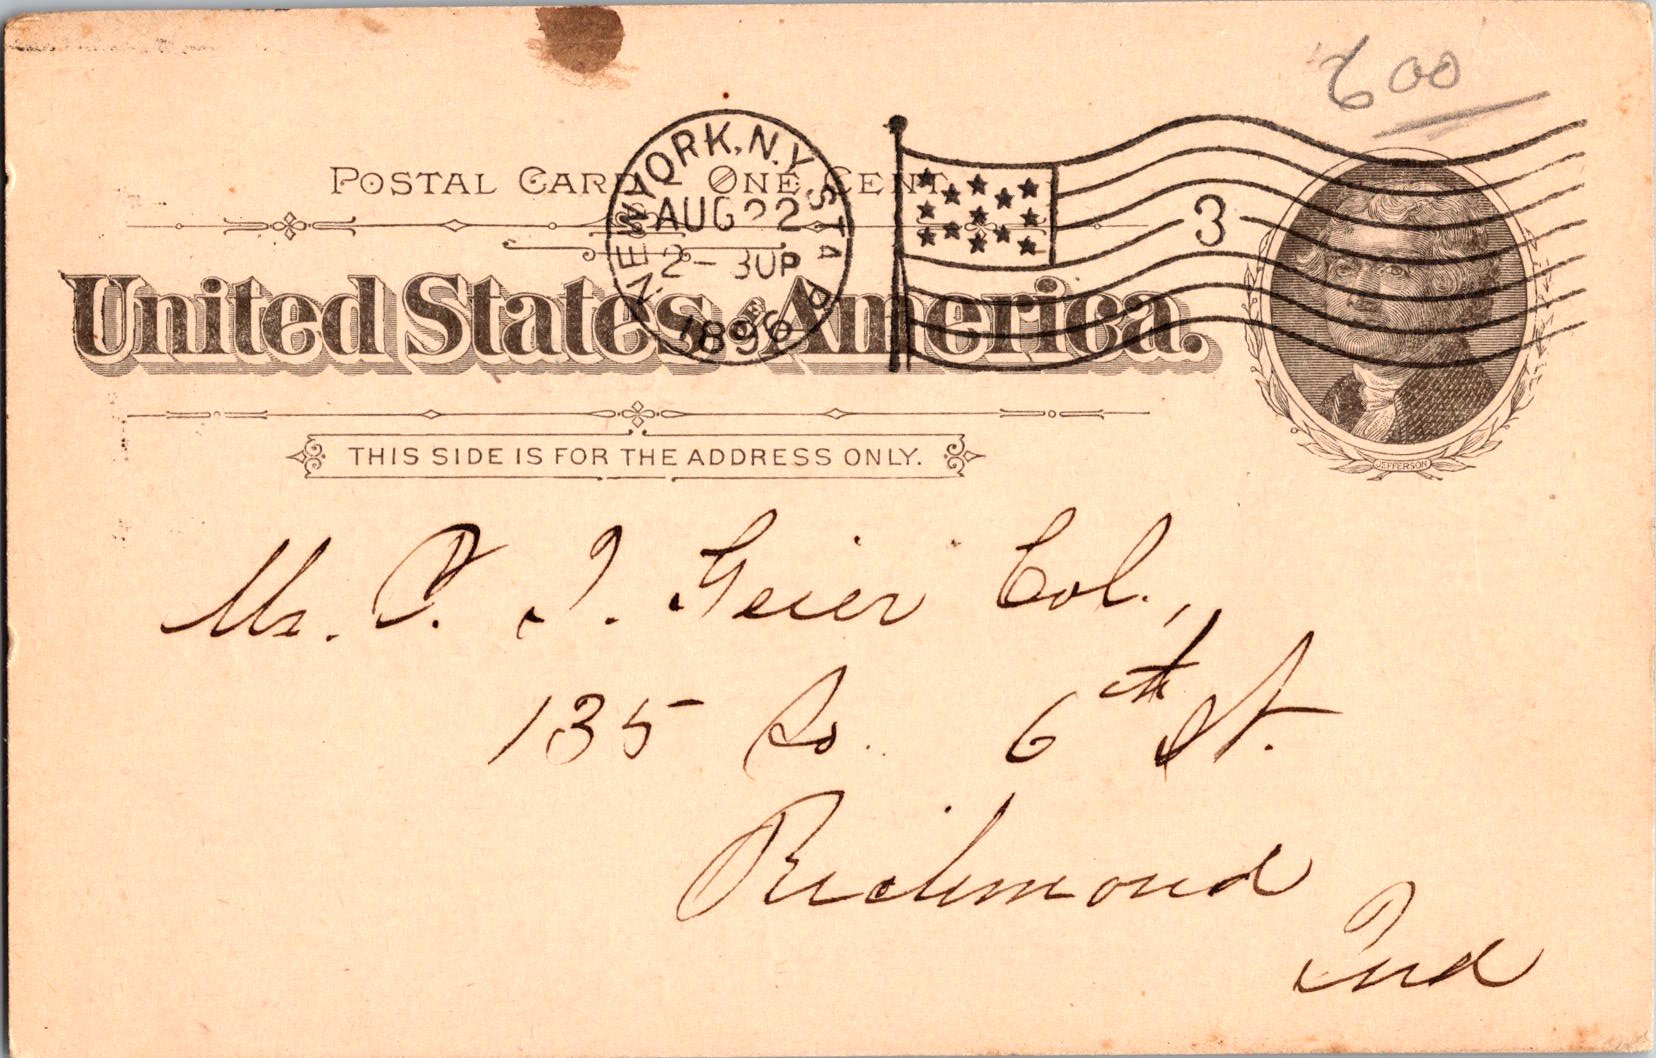 600
POSTAL CARD - ONE CENT.
NEW YORK, N.Y. STA P
AUG 22
2 - 30P
1896
3
United States of America.
JEFFERSON
THIS SIDE IS FOR THE ADDRESS ONLY.
Mr. I. Geier Col.,
135 So. 6th St.
Richmond
Ind